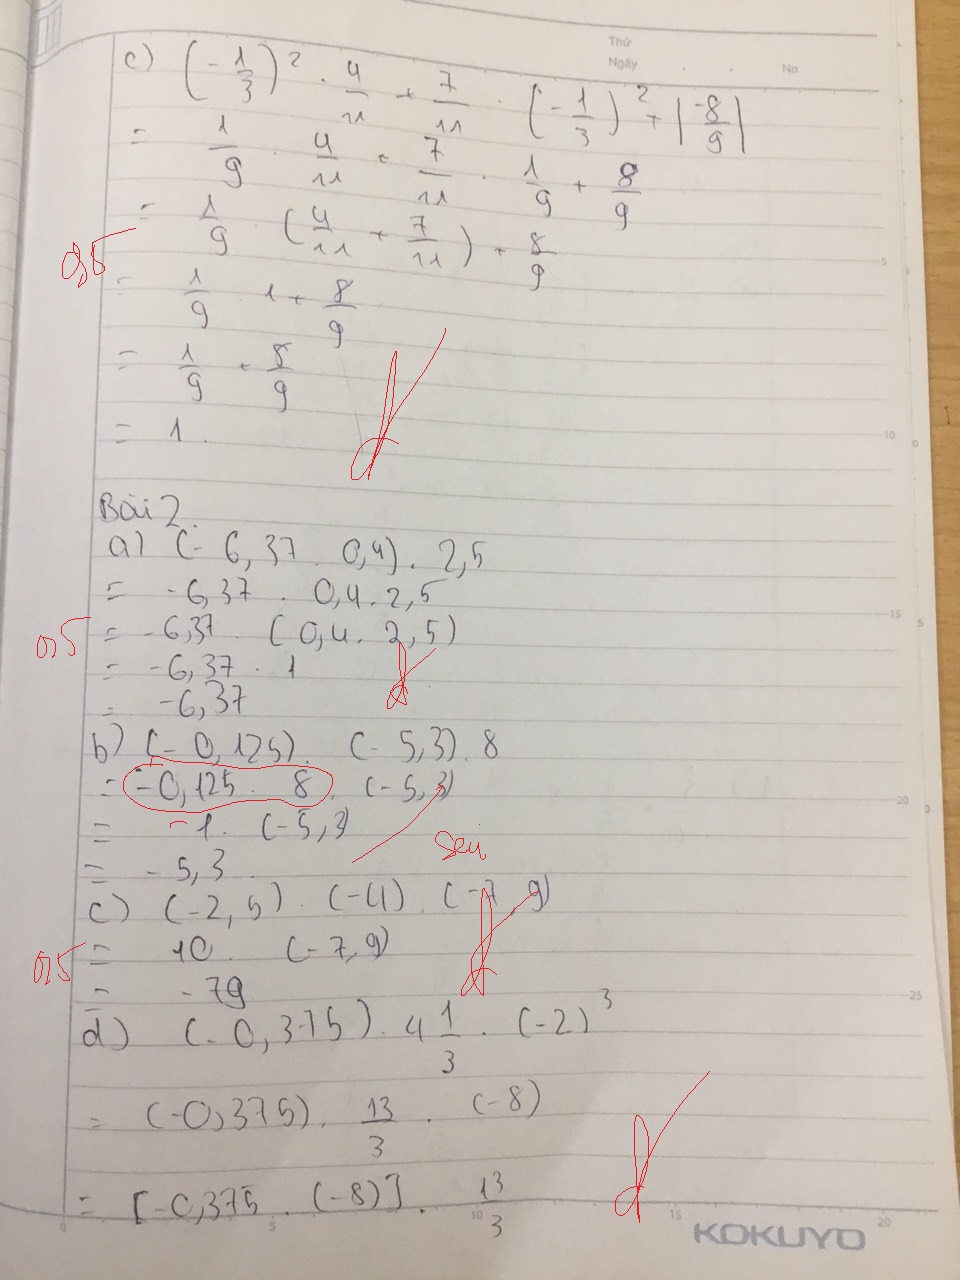 Thứ
Ngày . . No
c) (-1/3)² . 4/11 + 7/11 . (-1/3)² + |-8/9|
= 1/9 . 4/11 + 7/11 . 1/9 + 8/9
= 1/9 . (4/11 + 7/11) + 8/9
0,5
= 1/9 . 1 + 8/9
= 1/9 + 8/9
= 1.
Bài 2.
a) (-6,37 . 0,4) . 2,5
= -6,37 . 0,4 . 2,5
0,5 = -6,37 . (0,4 . 2,5)
= -6,37 . 1
= -6,37
b) (-0,125) . (-5,3) . 8
= -0,125 . 8 . (-5,3)
= -1 . (-5,3)
Sai
= -5,3
c) (-2,5) . (-4) . (-7,9)
0,5 = 10 . (-7,9)
= -79
d) (-0,375) . 4 1/3 . (-2)³
= (-0,375) . 13/3 . (-8)
= [-0,375 . (-8)] . 13/3
KOKUYO
5
10
15
20
25
0
5
10
15
20